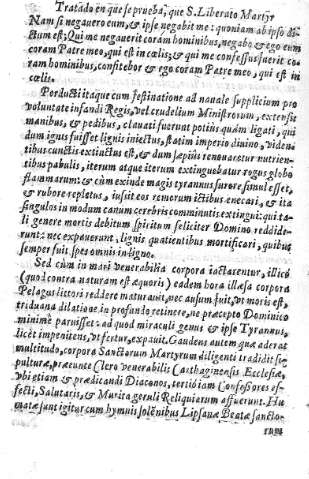 Tratado en que se prueva, que S. Liberato Martyr
Nam si negauero eum, & ipse negabit me: quoniam ab ipso di-
ctum est; Qui me negauerit coram hominibus, negabo & ego eum
coram Patre meo, qui est in cœlis; & qui me confessus fuerit co-
ram hominibus, confitebor & ego coram Patre meo, qui est in
cœlis.
Perducti itaque cum festinatione ad nauale supplicium pro
voluntate infandi Regis, vel crudelium Ministrorum, extensis
manibus, & pedibus, clauati fuerunt potiùs quàm ligati, qui
dum ignis fuisset lignis iniectus, statim imperio diuino, viden-
tibus cunctis extinctus est, & dum sæpiùs renouaretur nutrien-
tibus pabulis, iterum atque iterum extinguebatur rogus globo
flammarum: & cùm exinde magis tyrannus furore simul esset,
& rubore repletus, iussit eos remorum ictibus enecari, & ita
singulos in modum canum cerebris comminutis extingui: qui ta-
li genere mortis debitum spiritum feliciter Domino reddide-
runt: nec expauerunt, lignis quatientibus mortificari, quibus
semper fuit spes omnis in ligno.
Sed cùm in mari venerabilia corpora iactarentur, illicò
(quod contra naturam est æquoris) eadem hora illæsa corpora
Pelagus littori reddere maturauit, nec ausum fuit, vt moris est,
triduana dilatione in profundo retinere, ne præcepto Dominico
minimè paruisset: ad quod miraculi genus & ipse Tyrannus,
licèt impenitens, vt fertur, expauit. Gaudens autem quæ aderat
multitudo, corpora Sanctorum Martyrum diligenti tradidit se-
pulturæ, præeunte Clero venerabilis Carthaginensis Ecclesiæ,
vbi etiam & prædicandi Diaconos, tertiò iam Confessores ef-
fecti, Salutaris, & Murita geruli Reliquiarum affuerunt. Hu-
matæ sunt igitur cum hymnis solēnibus Lipsanæ Beatæ sanctor
rum